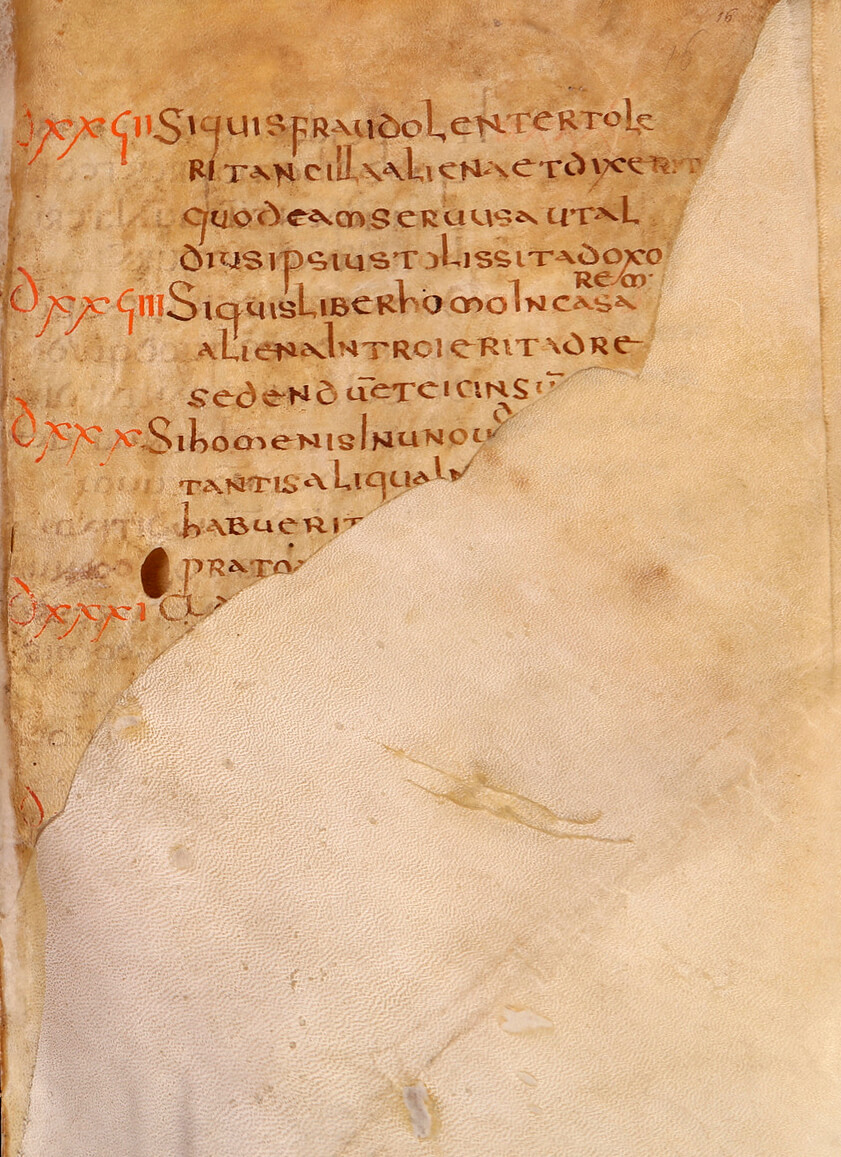 16
16
DXXϚII Siquisfraudolentertole
ritancillaalienaetdixerit
quodeamseruusautal
diusipsiustolissitadoxo
rem·
DXXϚIII Siquisliberhomoincasa
alienaintroieritadre
sedendūeteicinsū
DXXX Sihomenisinuno
tantisaliqua
habuerit
prato
DXXXI Cla